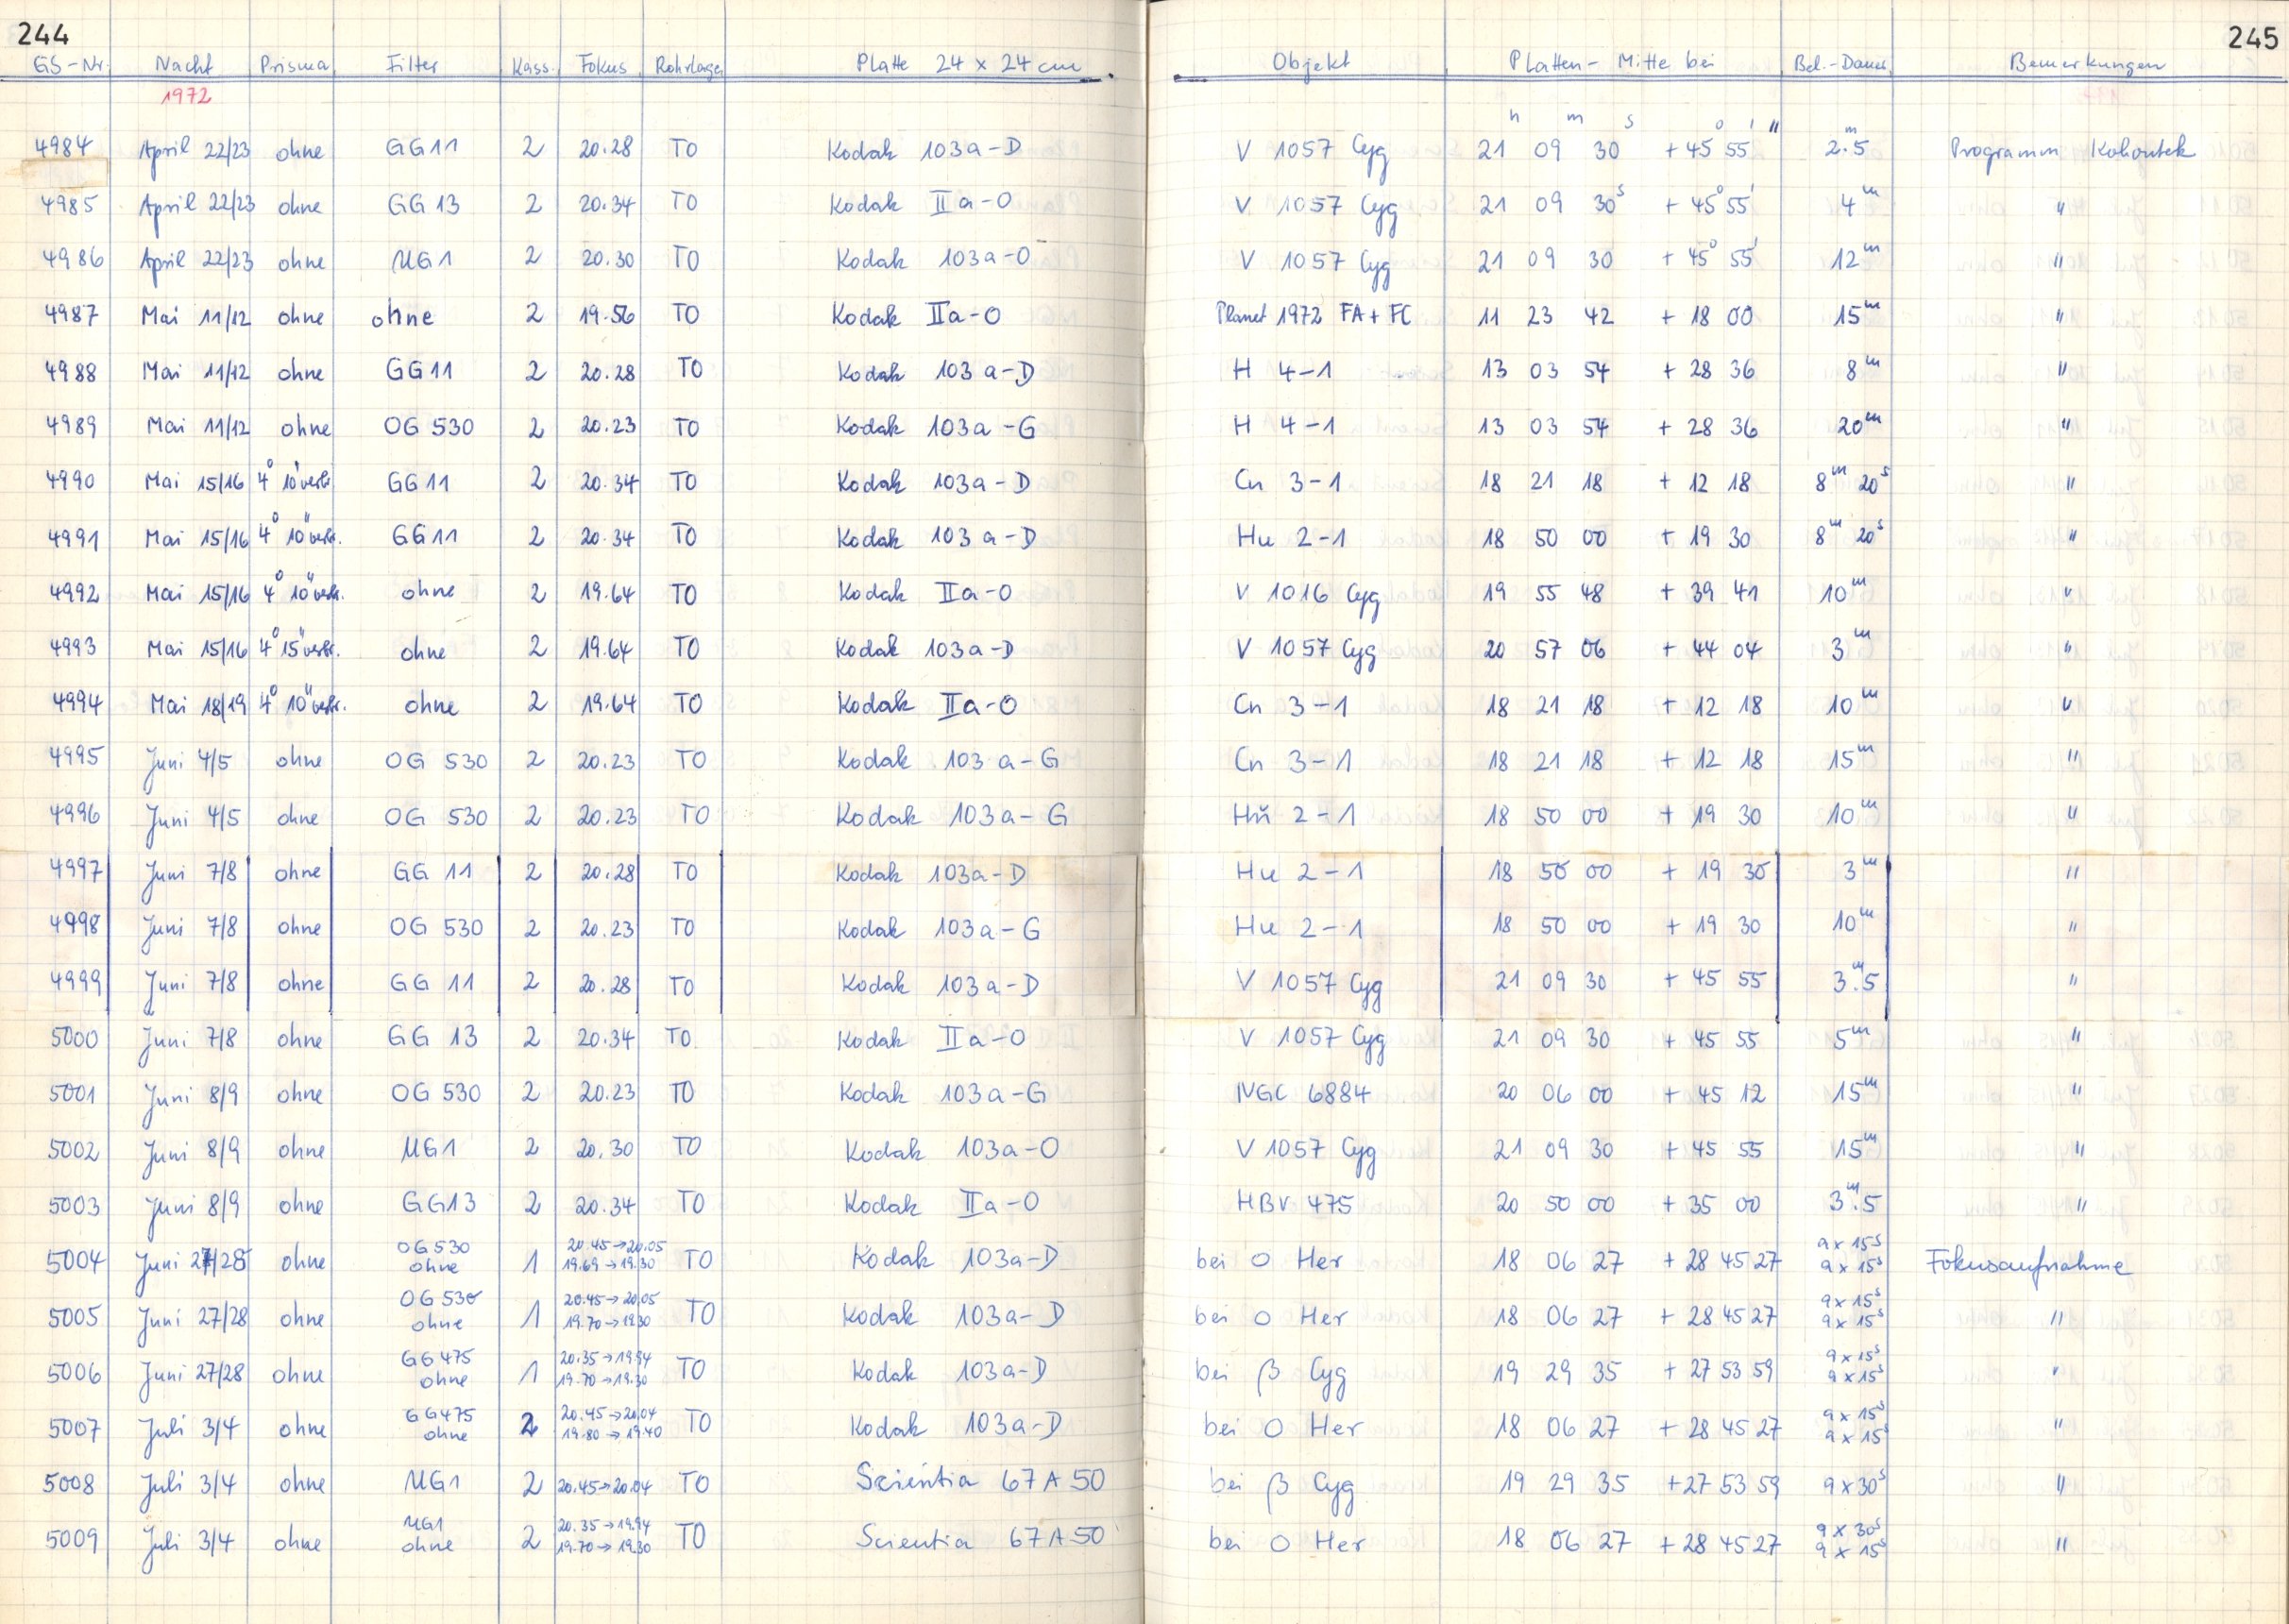 244
245
GS-Nr. Nacht Prisma Filter Kass. Fokus Rohrlage Platte 24 x 24 cm Objekt Platten-Mitte bei Bel.-Dauer Bemerkungen
1972
h m s ° ' "
4984 April 22/23 ohne GG11 2 20.28 TO Kodak 103a-D V 1057 Cyg 21 09 30 +45 55 2.5m Programm Kohoutek
4985 April 22/23 ohne GG 13 2 20.34 TO Kodak IIa-O V 1057 Cyg 21 09 30s +45° 55' 4m "
4986 April 22/23 ohne UG1 2 20.30 TO Kodak 103a-O V 1057 Cyg 21 09 30 +45° 55' 12m "
4987 Mai 11/12 ohne ohne 2 19.56 TO Kodak IIa-O Planet 1972 FA + FC 11 23 42 +18 00 15m "
4988 Mai 11/12 ohne GG11 2 20.28 TO Kodak 103a-D H 4-1 13 03 54 +28 36 8m "
4989 Mai 11/12 ohne OG 530 2 20.23 TO Kodak 103a-G H 4-1 13 03 54 +28 36 20m "
4990 Mai 15/16 4° 10" verbr. GG11 2 20.34 TO Kodak 103a-D Cn 3-1 18 21 18 +12 18 8m 20s "
4991 Mai 15/16 4° 10" verbr. GG11 2 20.34 TO Kodak 103a-D Hu 2-1 18 50 00 +19 30 8m 20s "
4992 Mai 15/16 4° 10" verbr. ohne 2 19.64 TO Kodak IIa-O V 1016 Cyg 19 55 48 +39 41 10m "
4993 Mai 15/16 4° 15" verbr. ohne 2 19.64 TO Kodak 103a-D V 1057 Cyg 20 57 06 +44 04 3m "
4994 Mai 18/19 4° 10" verbr. ohne 2 19.64 TO Kodak IIa-O Cn 3-1 18 21 18 +12 18 10m "
4995 Juni 4/5 ohne OG 530 2 20.23 TO Kodak 103a-G Cn 3-1 18 21 18 +12 18 15m "
4996 Juni 4/5 ohne OG 530 2 20.23 TO Kodak 103a-G Hŭ 2-1 18 50 00 +19 30 10m "
4997 Juni 7/8 ohne GG 11 2 20.28 TO Kodak 103a-D Hu 2-1 18 50 00 +19 30 3m "
4998 Juni 7/8 ohne OG 530 2 20.23 TO Kodak 103a-G Hu 2-1 18 50 00 +19 30 10m "
4999 Juni 7/8 ohne GG 11 2 20.28 TO Kodak 103a-D V 1057 Cyg 21 09 30 +45 55 3m.5 "
5000 Juni 7/8 ohne GG 13 2 20.34 TO Kodak IIa-O V 1057 Cyg 21 09 30 +45 55 5m "
5001 Juni 8/9 ohne OG 530 2 20.23 TO Kodak 103a-G NGC 6884 20 06 00 +45 12 15m "
5002 Juni 8/9 ohne UG1 2 20.30 TO Kodak 103a-O V 1057 Cyg 21 09 30 +45 55 15m "
5003 Juni 8/9 ohne GG13 2 20.34 TO Kodak IIa-O HBV 475 20 50 00 +35 00 3m.5 "
OG530 20.45→20.05 9 x 15s
5004 Juni 27/28 ohne ohne 1 19.69→19.30 TO Kodak 103a-D bei O Her 18 06 27 +28 45 27 9 x 15s Fokusaufnahme
OG530 20.45→20.05 9 x 15s
5005 Juni 27/28 ohne ohne 1 19.70→19.30 TO Kodak 103a-D bei O Her 18 06 27 +28 45 27 9 x 15s "
GG475 20.35→19.94 9 x 15s
5006 Juni 27/28 ohne ohne 1 19.70→19.30 TO Kodak 103a-D bei β Cyg 19 29 35 +27 53 59 9 x 15s "
GG475 20.45→20.04 9 x 15s
5007 Juli 3/4 ohne ohne 2 19.80→19.40 TO Kodak 103a-D bei O Her 18 06 27 +28 45 27 9 x 15s "
5008 Juli 3/4 ohne UG1 2 20.45→20.04 TO Scientia 67 A 50 bei β Cyg 19 29 35 +27 53 59 9 x 30s "
UG1 20.35→19.94 9 x 30s
5009 Juli 3/4 ohne ohne 2 19.70→19.30 TO Scientia 67 A 50 bei O Her 18 06 27 +28 45 27 9 x 15s "